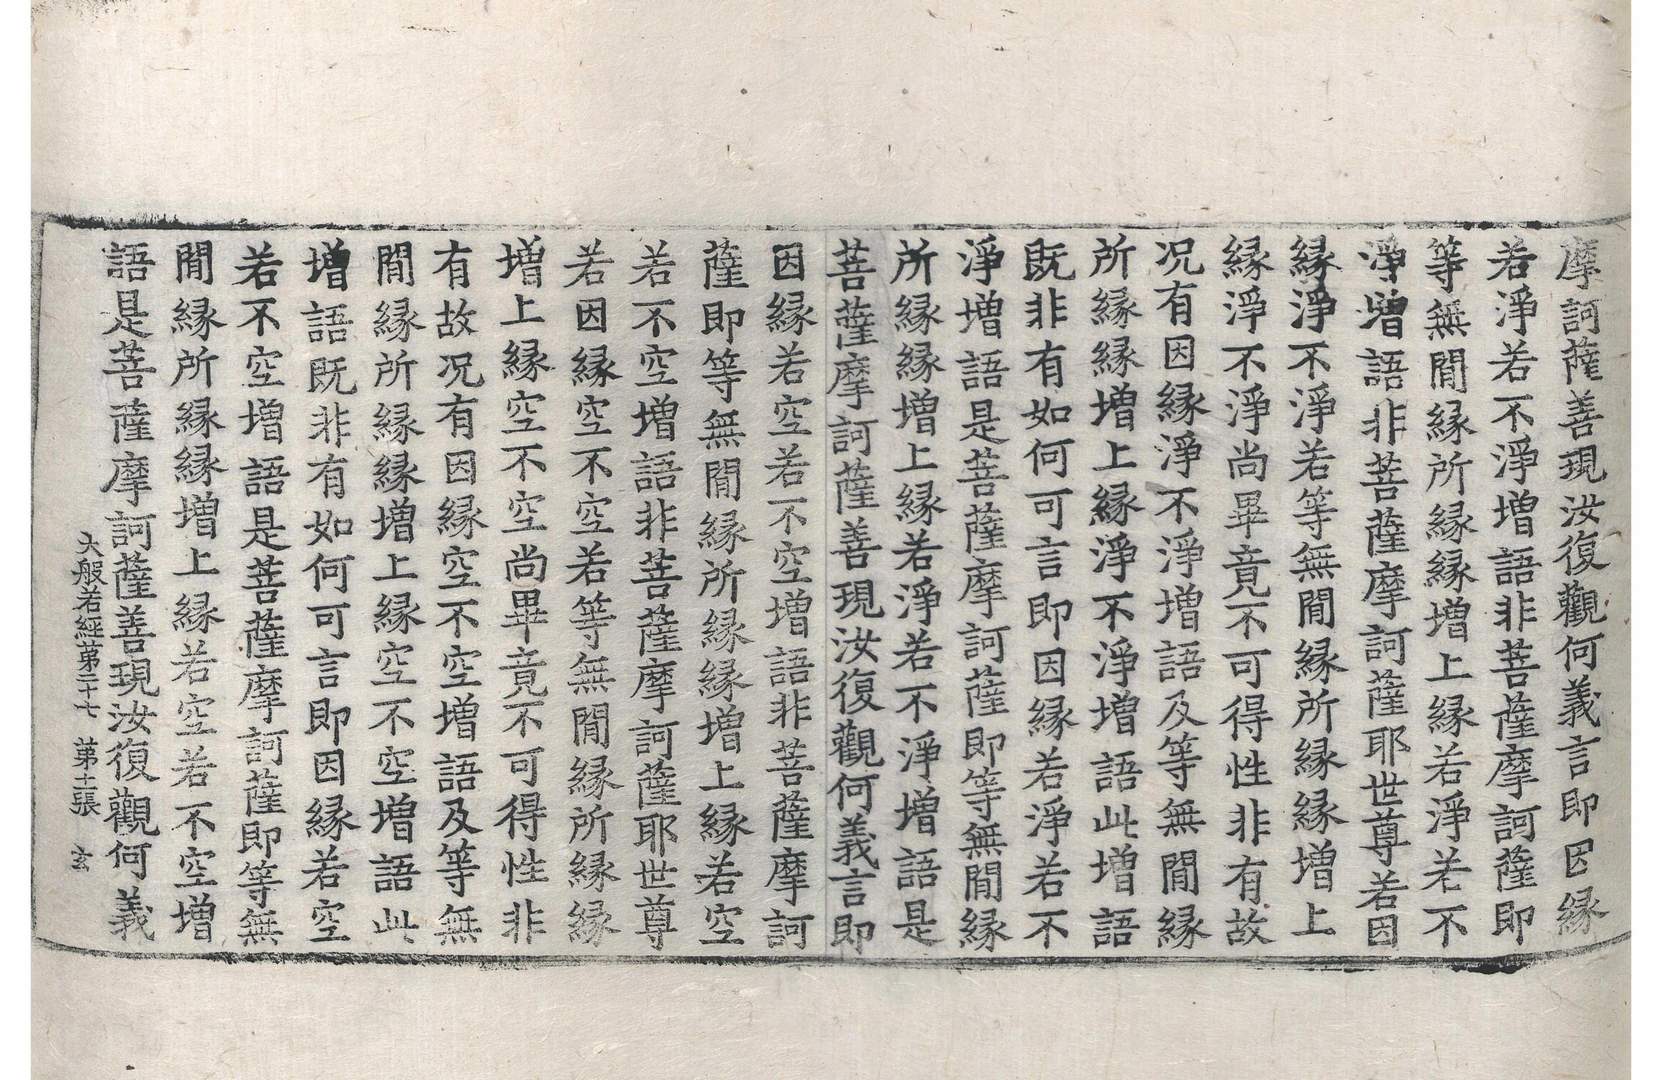 摩訶薩善現汝復觀何義言即因縁
若淨若不淨增語非菩薩摩訶薩即
等無間縁所縁縁增上縁若淨若不
淨增語非菩薩摩訶薩耶世尊若因
縁淨不淨若等無間縁所縁縁增上
縁淨不淨尚畢竟不可得性非有故
况有因縁淨不淨增語及等無間縁
所縁縁增上縁淨不淨增語此增語
既非有如何可言即因縁若淨若不
淨增語是菩薩摩訶薩即等無間縁
所縁縁增上縁若淨若不淨增語是
菩薩摩訶薩善現汝復觀何義言即
因縁若空若不空增語非菩薩摩訶
薩即等無間縁所縁縁增上縁若空
若不空增語非菩薩摩訶薩耶世尊
若因縁空不空若等無間縁所縁縁
增上縁空不空尚畢竟不可得性非
有故况有因縁空不空增語及等無
間縁所縁縁增上縁空不空增語此
增語既非有如何可言即因縁若空
若不空增語是菩薩摩訶薩即等無
間縁所縁縁增上縁若空若不空增
大般若經第二十七 第十二張 玄
語是菩薩摩訶薩善現汝復觀何義